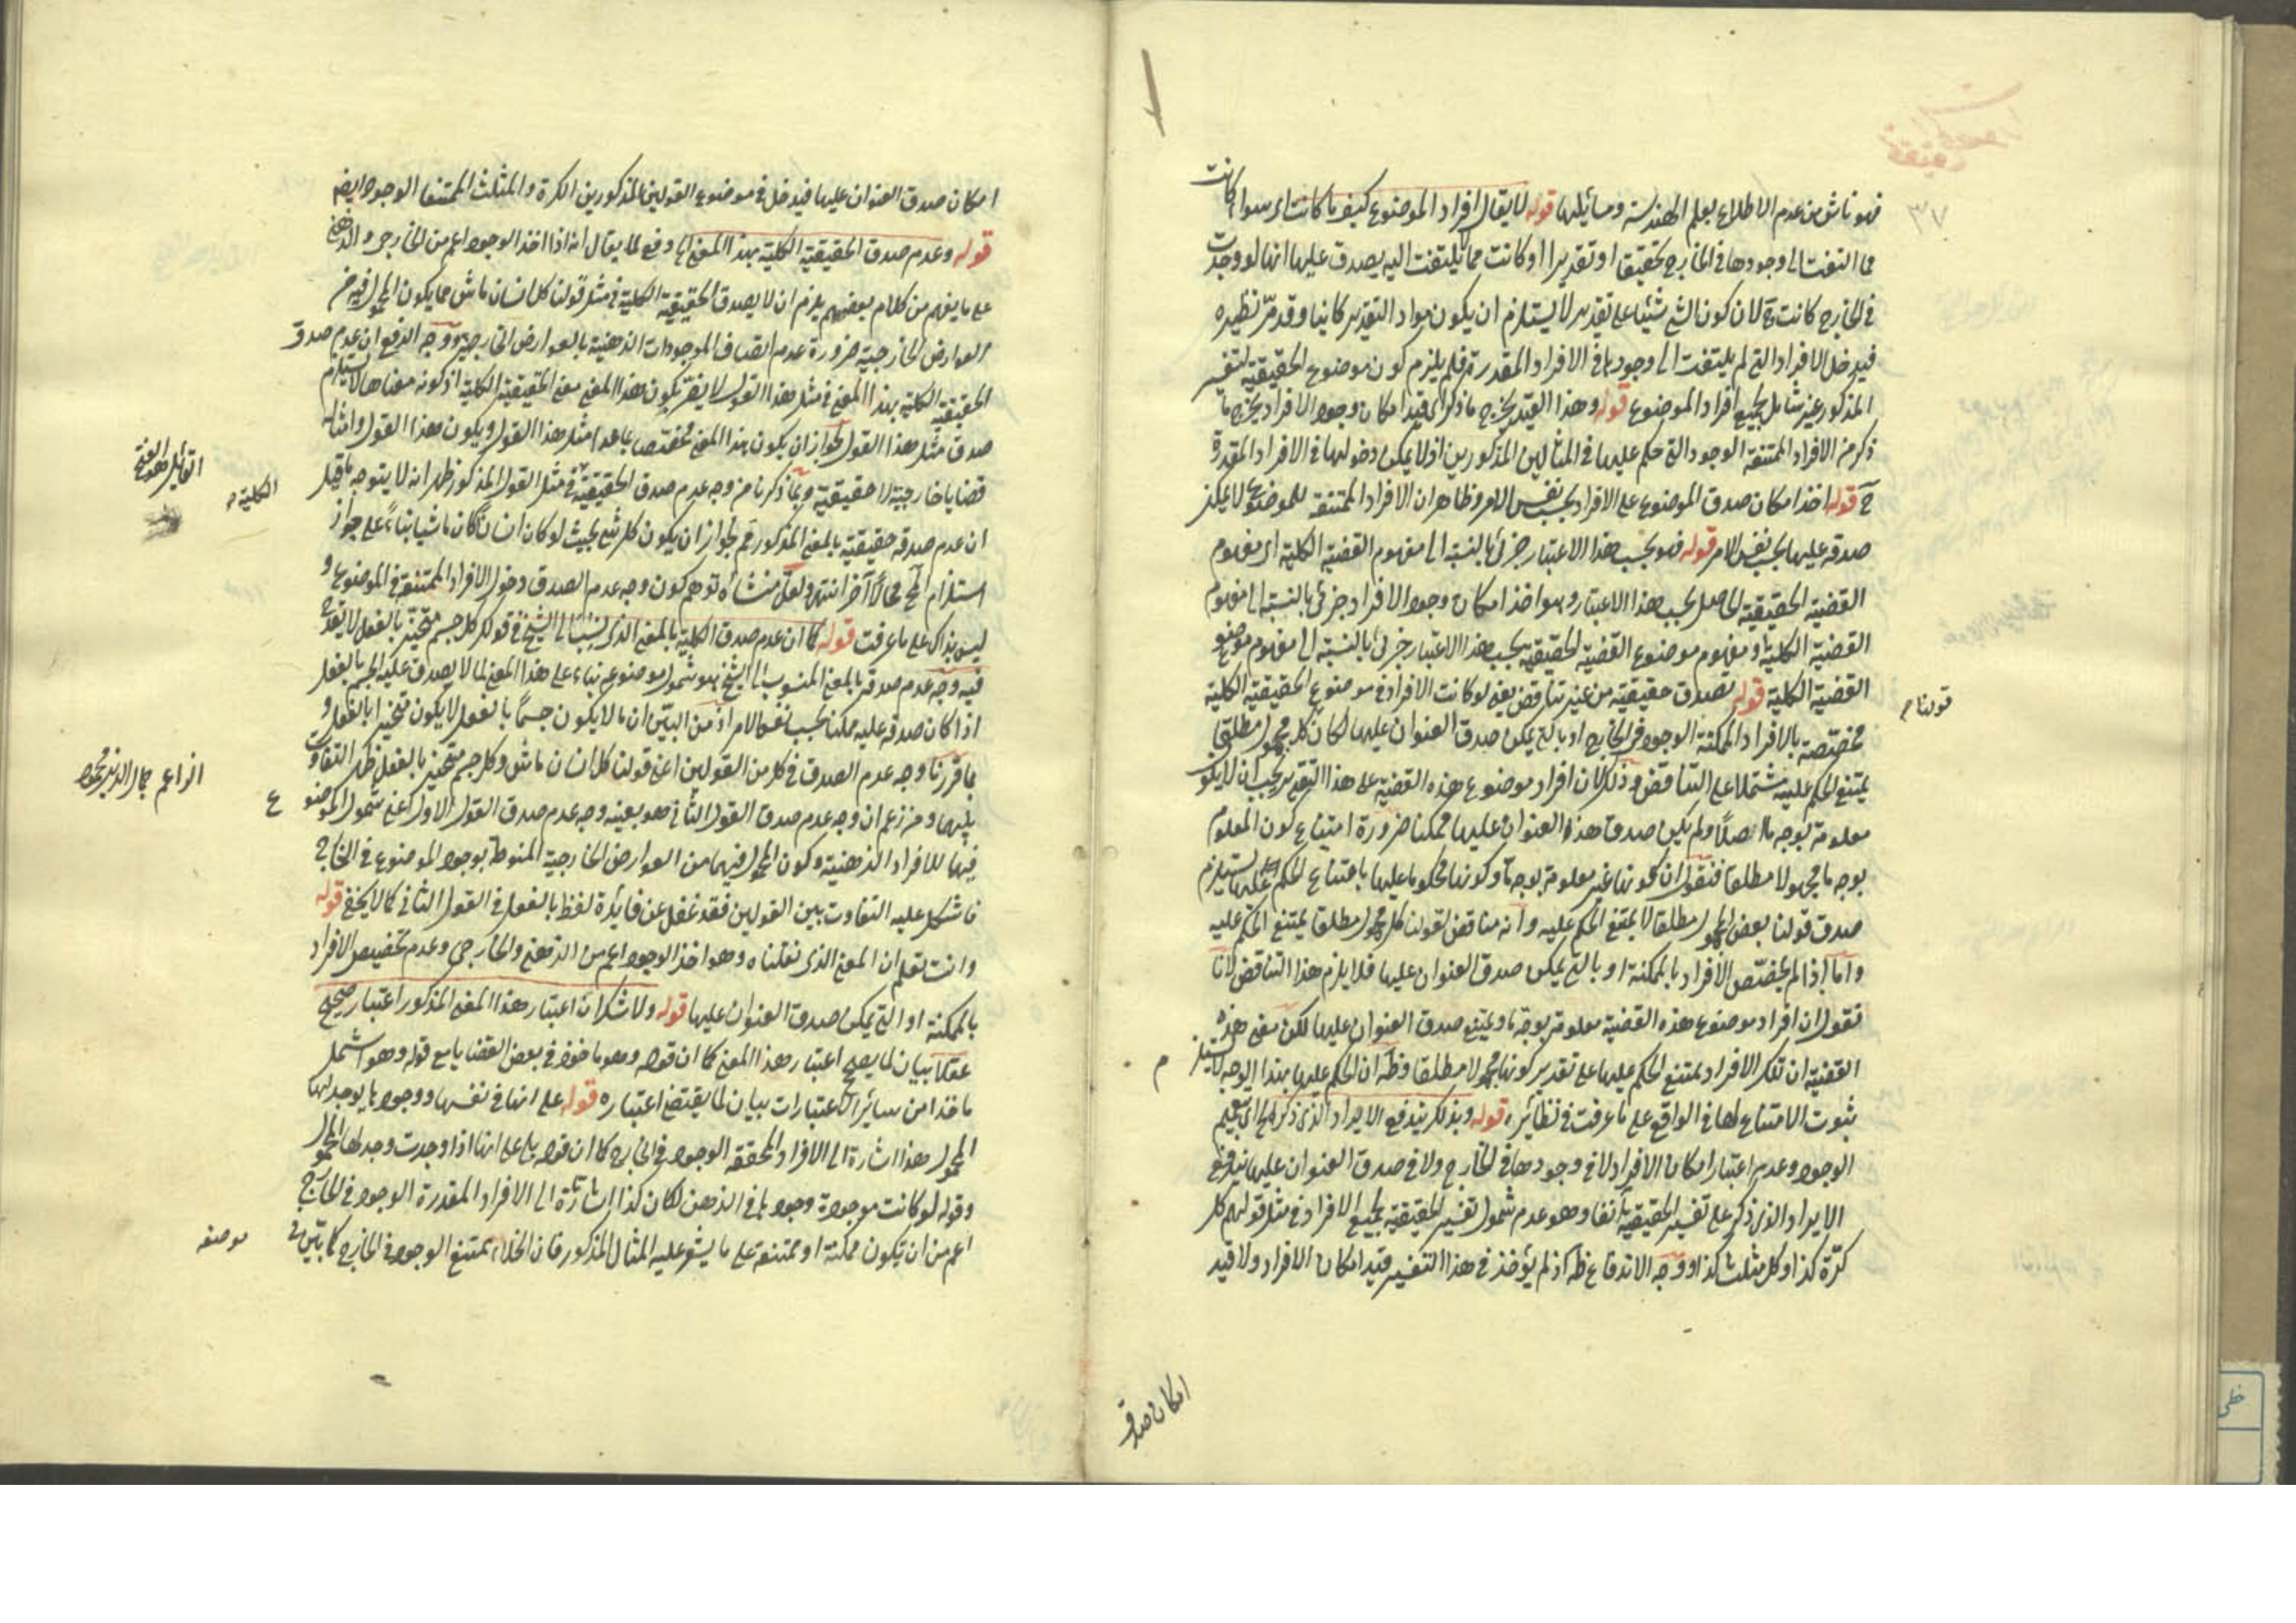 ٣٧
فهو ناش من عدم الاطلاع بعلم الهندسة ومسائلها قوله لا يقال افراد الموضوع كيف ما كانت اى سواء كانت
مما التفت الى وجودها فى الخارج تحقيقا او تقديرا او كانت مما لا يلتفت اليه يصدق عليها انها لو وجدت
فى الخارج كانت لان كون الشئ شيئا على تقدير لا يستلزم ان يكون مواد التقدير كانيا وقد مرّ نظيره
فيدخل الافراد التى لم يلتفت الى وجودها فى الافراد المقدرة فلم يلزم كون موضوع الحقيقية لتفسير
المذكور غير شامل لجميع افراد الموضوع قوله وهذا القيد يخرج ما ذكر اى قيد امكان وجود الافراد يخرج ما
ذكر من الافراد الممتنعة الوجود التى حكم عليها فى المثالين المذكورين اذ لا يمكن دخولها فى الافراد المقدرة
ح قوله اخذ امكان صدق الموضوع على الافراد بحسب نفس الامر وظاهر ان الافراد الممتنعة للموضوع لا يمكن
صدقه عليها بحسب نفس الامر قوله فهو بحسب هذا الاعتبار جزئى بالنسبة الى مفهوم القضية الكلية اى مفهوم
القضية الحقيقية الحاصل بحسب هذا الاعتبار وهو اخذ امكان وجود الافراد جزئى بالنسبة الى مفهوم
القضية الكلية او مفهوم موضوع القضية الحقيقية بحسب هذا الاعتبار جزئى بالنسبة الى مفهوم موضوع
القضية الكلية قوله تصدق حقيقية من غير تناقض يعنى لو كانت الافراد فى موضوع الحقيقية الكلية
قولنا م
مختصة بالافراد الممكنة الوجود فى الخارج او بالتى يمكن صدق العنوان عليها لكان كل مجهول مطلقا
يمتنع الحكم عليه مشتملا على التناقض وذلك لان افراد موضوع هذه القضية على هذا التقدير يجب ان لا يكون
معلومة بوجه ما اصلا ولم يكن صدق هذا العنوان عليها ممكنا ضرورة امتناع كون المعلوم
بوجه ما مجهولا مطلقا فنقول ان كونها غير معلومة بوجه ما وكونها محكوما عليها بامتناع الحكم عليها يستلزم
صدق قولنا بعض المجهول مطلقا لا يمتنع الحكم عليه وانه مناقض لقولنا كل مجهول مطلقا يمتنع الحكم عليه
واما اذا لم يختص الافراد بالممكنة او بالتى يمكن صدق العنوان عليها فلا يلزم هذا التناقض لانا
نقول ان افراد موضوع هذه القضية معلومة بوجه ما ويمتنع صدق العنوان عليها لكن معنى هذه
القضية ان تلك الافراد يمتنع الحكم عليها على تقدير كونها مجهولا مطلقا وظ ان الحكم عليها بهذا الوجه لا يستلزم
م
ثبوت الامتناع لها فى الواقع على ما عرفت فى نظائره قوله وبذلك يندفع الايراد الذى ذكره اى بتعميم
الوجود وعدم اعتبار امكان الافراد لا فى وجودها فى الخارج ولا فى صدق العنوان عليها يندفع
الايراد الذى ذكر على تفسير الحقيقية آنفا وهو عدم شمول تفسير الحقيقية لجميع الافراد فى مثل قولهم كل
كرّة كذا وكل مثلث كذا ووجه الاندفاع ظ اذ لم يؤخذ فى هذا التفسير قيد امكان الافراد ولا قيد
امكان صدق
امكان صدق العنوان عليها فيدخل فى موضوع القولين المذكورين الكرة والمثلث الممتنعا الوجود ايضا
قوله وعدم صدق الحقيقية الكلية بهذا المعنى اه دفع لما يقال انه اذا اخذ الوجود اعم من الخارجى والذهنى
على ما يفهم من كلام بعضهم يلزم ان لا يصدق الحقيقية الكلية فى مثل قولنا كل انسان ماش مما يكون المحمول فيه من
العوارض الخارجية ضرورة عدم اتصاف الموجودات الذهنية بالعوارض الخارجية ووجه الدفع ان عدم صدق
الحقيقية الكلية بهذا المعنى فى مثل هذا القول لا يضرّ بكون هذا المعنى معنى الحقيقية الكلية اذ كونه معناها لا يستلزم
صدق مثل هذا القول لجواز ان يكون هذا المعنى مختصا بما عدا مثل هذا القول ويكون هذا القول وامثاله
قضايا خارجية لا حقيقية وبما ذكرنا من وجه عدم صدق الحقيقية فى مثل القول المذكور ظهر انه لا يتوجه ما قيل
الكلية م
القائل
ان عدم صدقه حقيقية بالمعنى المذكور مم لجواز ان يكون كل شئ بحيث لو كان انسانا كان ماشيا بناء على جواز
استلزام المح محالا آخر انتهى ولعل منشأه توهم كون وجه عدم الصدق دخول الافراد الممتنعة فى الموضوع و
ليس بذاك على ما عرفت قوله كما ان عدم صدق الكلية بالمعنى الذى ينسب الى الشيخ فى قولك كل جسم متحيز بالفعل لا يقدح
فيه وجه عدم صدقه بالمعنى المنسوب الى الشيخ هو شمول موضوعه بناء على هذا المعنى لما لا يصدق عليه الجسم بالفعل
اذا كان صدقه عليه ممكنا بحسب نفس الامر اذ من البيّن ان ما لا يكون جسما بالفعل لا يكون متحيزا بالفعل و
بما قررنا وجه عدم الصدق فى كل من القولين اعنى قولنا كل انسان ماش وكل جسم متحيز بالفعل ظهر التفاوت
الزاعم جمال الدين محمود
بينهما ومن زعم ان وجه عدم صدق القول الثانى هو بعينه وجه عدم صدق القول الاول اعنى شمول الموضوع
ع
فيهما للافراد الذهنية وكون المحمول فيهما من العوارض الخارجية المنوطة بوجود الموضوع فى الخارج
فاشكل عليه التفاوت بين القولين فقد غفل عن فايدة لفظ بالفعل فى القول الثانى كما لا يخفى قوله
وانت تعلم ان المعنى الذى نقلناه وهو اخذ الوجود اعم من الذهنى والخارجى وعدم تخصيص الافراد
بالممكنة او التى يمكن صدق العنوان عليها قوله ولا شك ان اعتبار هذا المعنى المذكور اعتبار صحيح
عقلا بيان لما يصح اعتبار هذا المعنى كما ان قوله وهو ماخوذ فى بعض القضايا مع قوله وهو اشمل
ماخذا من سائر الاعتبارات بيان لما يقتضى اعتباره قوله على انها فى نفسها ووجودها يوجد لها
المحمول هذا اشارة الى الافراد المحققة الوجود فى الخارج كما ان قوله بل على انها اذا وجدت وجد لها المحمول
وقوله لو كانت موجودة وجودها فى الذهن لكان كذا اشارة الى الافراد المقدرة الوجود فى الخارج
اعم من ان يكون ممكنة او ممتنعة على ما يشعر عليه المثال المذكور فان الخلاء يمتنع الوجود فى الخارج كما بيّن فى
موضعه
خطى